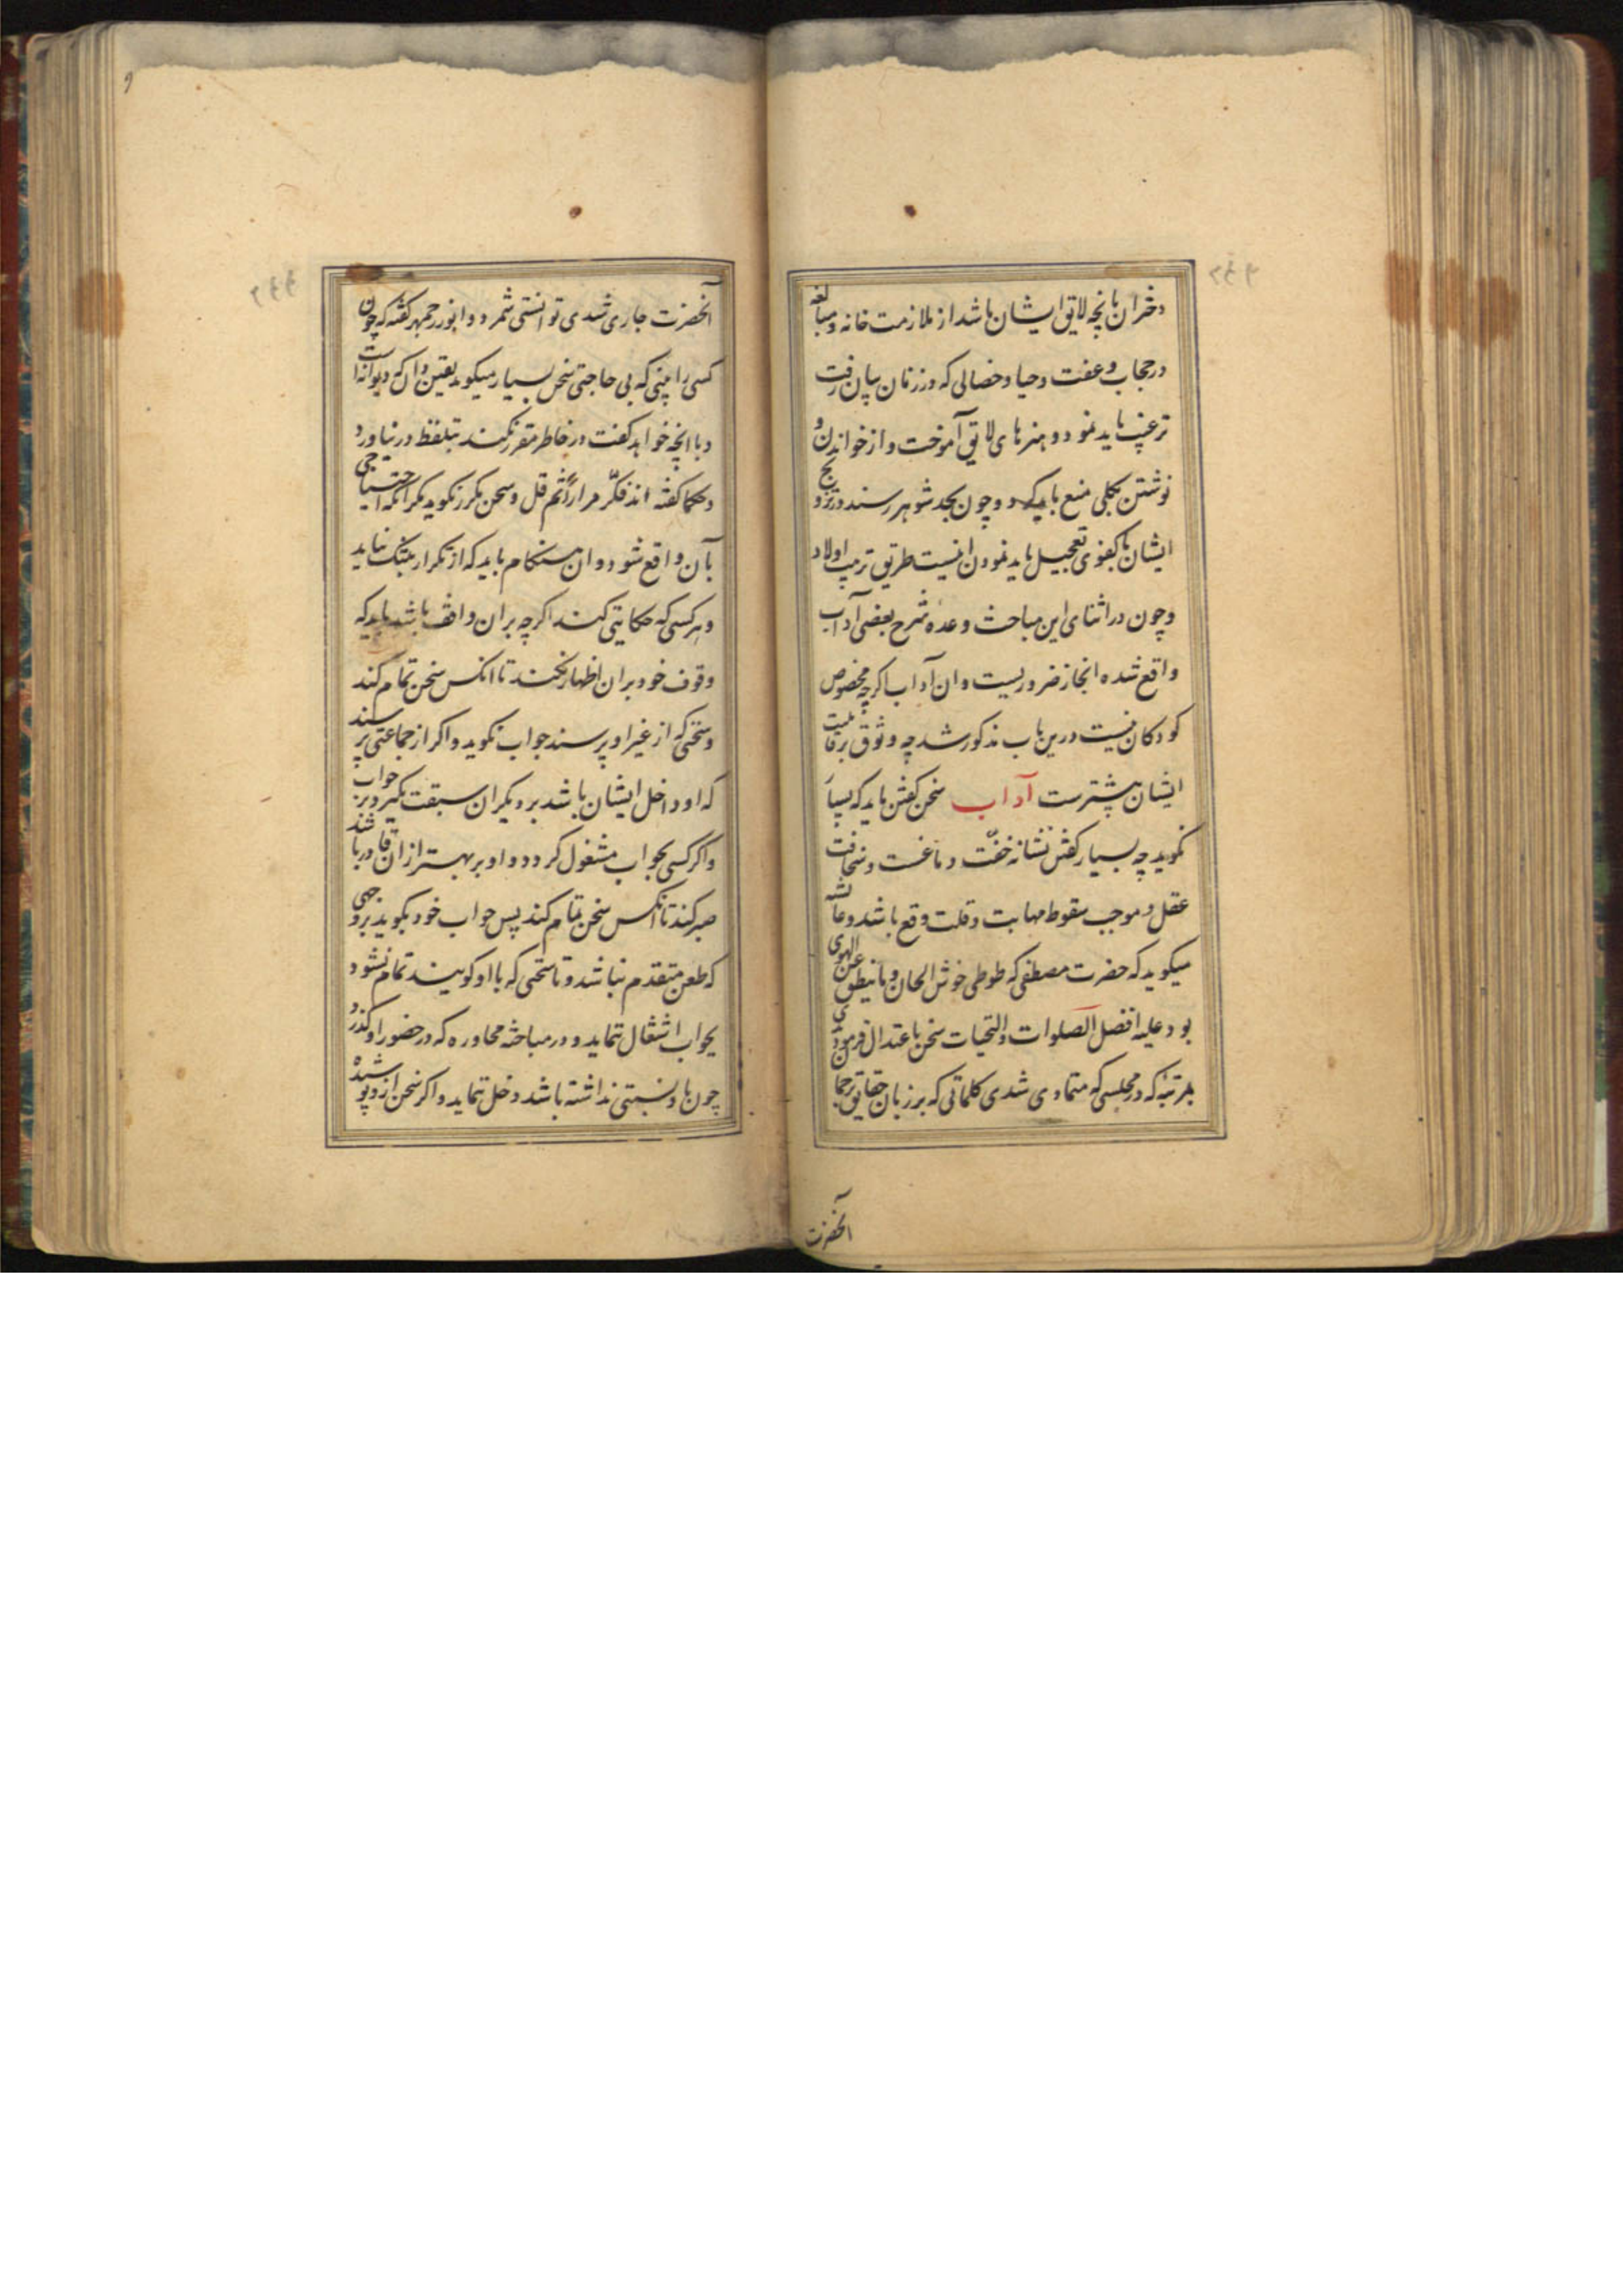 دختران بانچه لایق ایشان باشد از ملازمت خانه و مبالغه
در حجاب و عفت و حیا و خصالی که در زنان بیان رفت
ترغیب باید نمود و هنرهای لایق آموخت و از خواندن و
نوشتن بکلی منع باید کرد و چون بحد شوهر رسند در تزویج
ایشان با کفوی تعجیل باید نمود اینست طریق تربیت اولاد
و چون در اثنای این مباحث وعده شرح بعضی آداب
واقع شده انجاز ضروریست و ان آداب اگرچه مخصوص
کودکان نیست درین باب مذکور شد چه وثوق بر قابلیت
ایشان بیشترست آداب سخن گفتن باید که بسیار
نگوید چه بسیار گفتن نشانه خفّت دماغست و سخافت
عقل و موجب سقوط مهابت و قلت وقع باشد و عائشه
میگوید که حضرت مصطفی که طوطی خوش الحان وما ینطق عن الهوی
بود علیه افضل الصلوات والتحیات سخن باعتدال فرمودی
بمرتبه که در مجلسی که متمادی شدی کلماتی که بر زبان حقایق ترجمان
آنحضرت
آنحضرت جاری شدی توانستی شمرد و ابوزرجمهر گفته که چون
کسی را بینی که بی حاجتی سخن بسیار میگوید یقین دان که دیوانه است
و با انچه خواهد گفت در خاطر مقرر نکند بتلفظ در نیاورد
و حکما گفته اند فکّر مراراً ثم قل و سخن مکرر نگوید مگر آنکه احتیاجی
بآن واقع شود و ان هنگام باید که از تکرار بتنگ نیاید
و هر کسی که حکایتی کند اگرچه بران واقف باشد باید که
وقوف خود بران اظهار نکند تا انکس سخن تمام کند
و سخنی که از غیر او پرسند جواب نگوید و اگر از جماعتی پرسند
که او داخل ایشان باشد بر دیگران سبقت نگیرد بر جواب
و اگر کسی بجواب مشغول گردد و او بر بهتر از ان قادر باشد
صبر کند تا انکس سخن تمام کند پس جواب خود بگوید بر وجهی
که طعن متقدم نباشد و تا سخنی که با او گویند تمام نشود
بجواب اشتغال ننماید و در مباحثه محاوره که در حضور او گذرد
چون باو نسبتی نداشته باشد دخل ننماید و اگر سخن ازو پوشیده